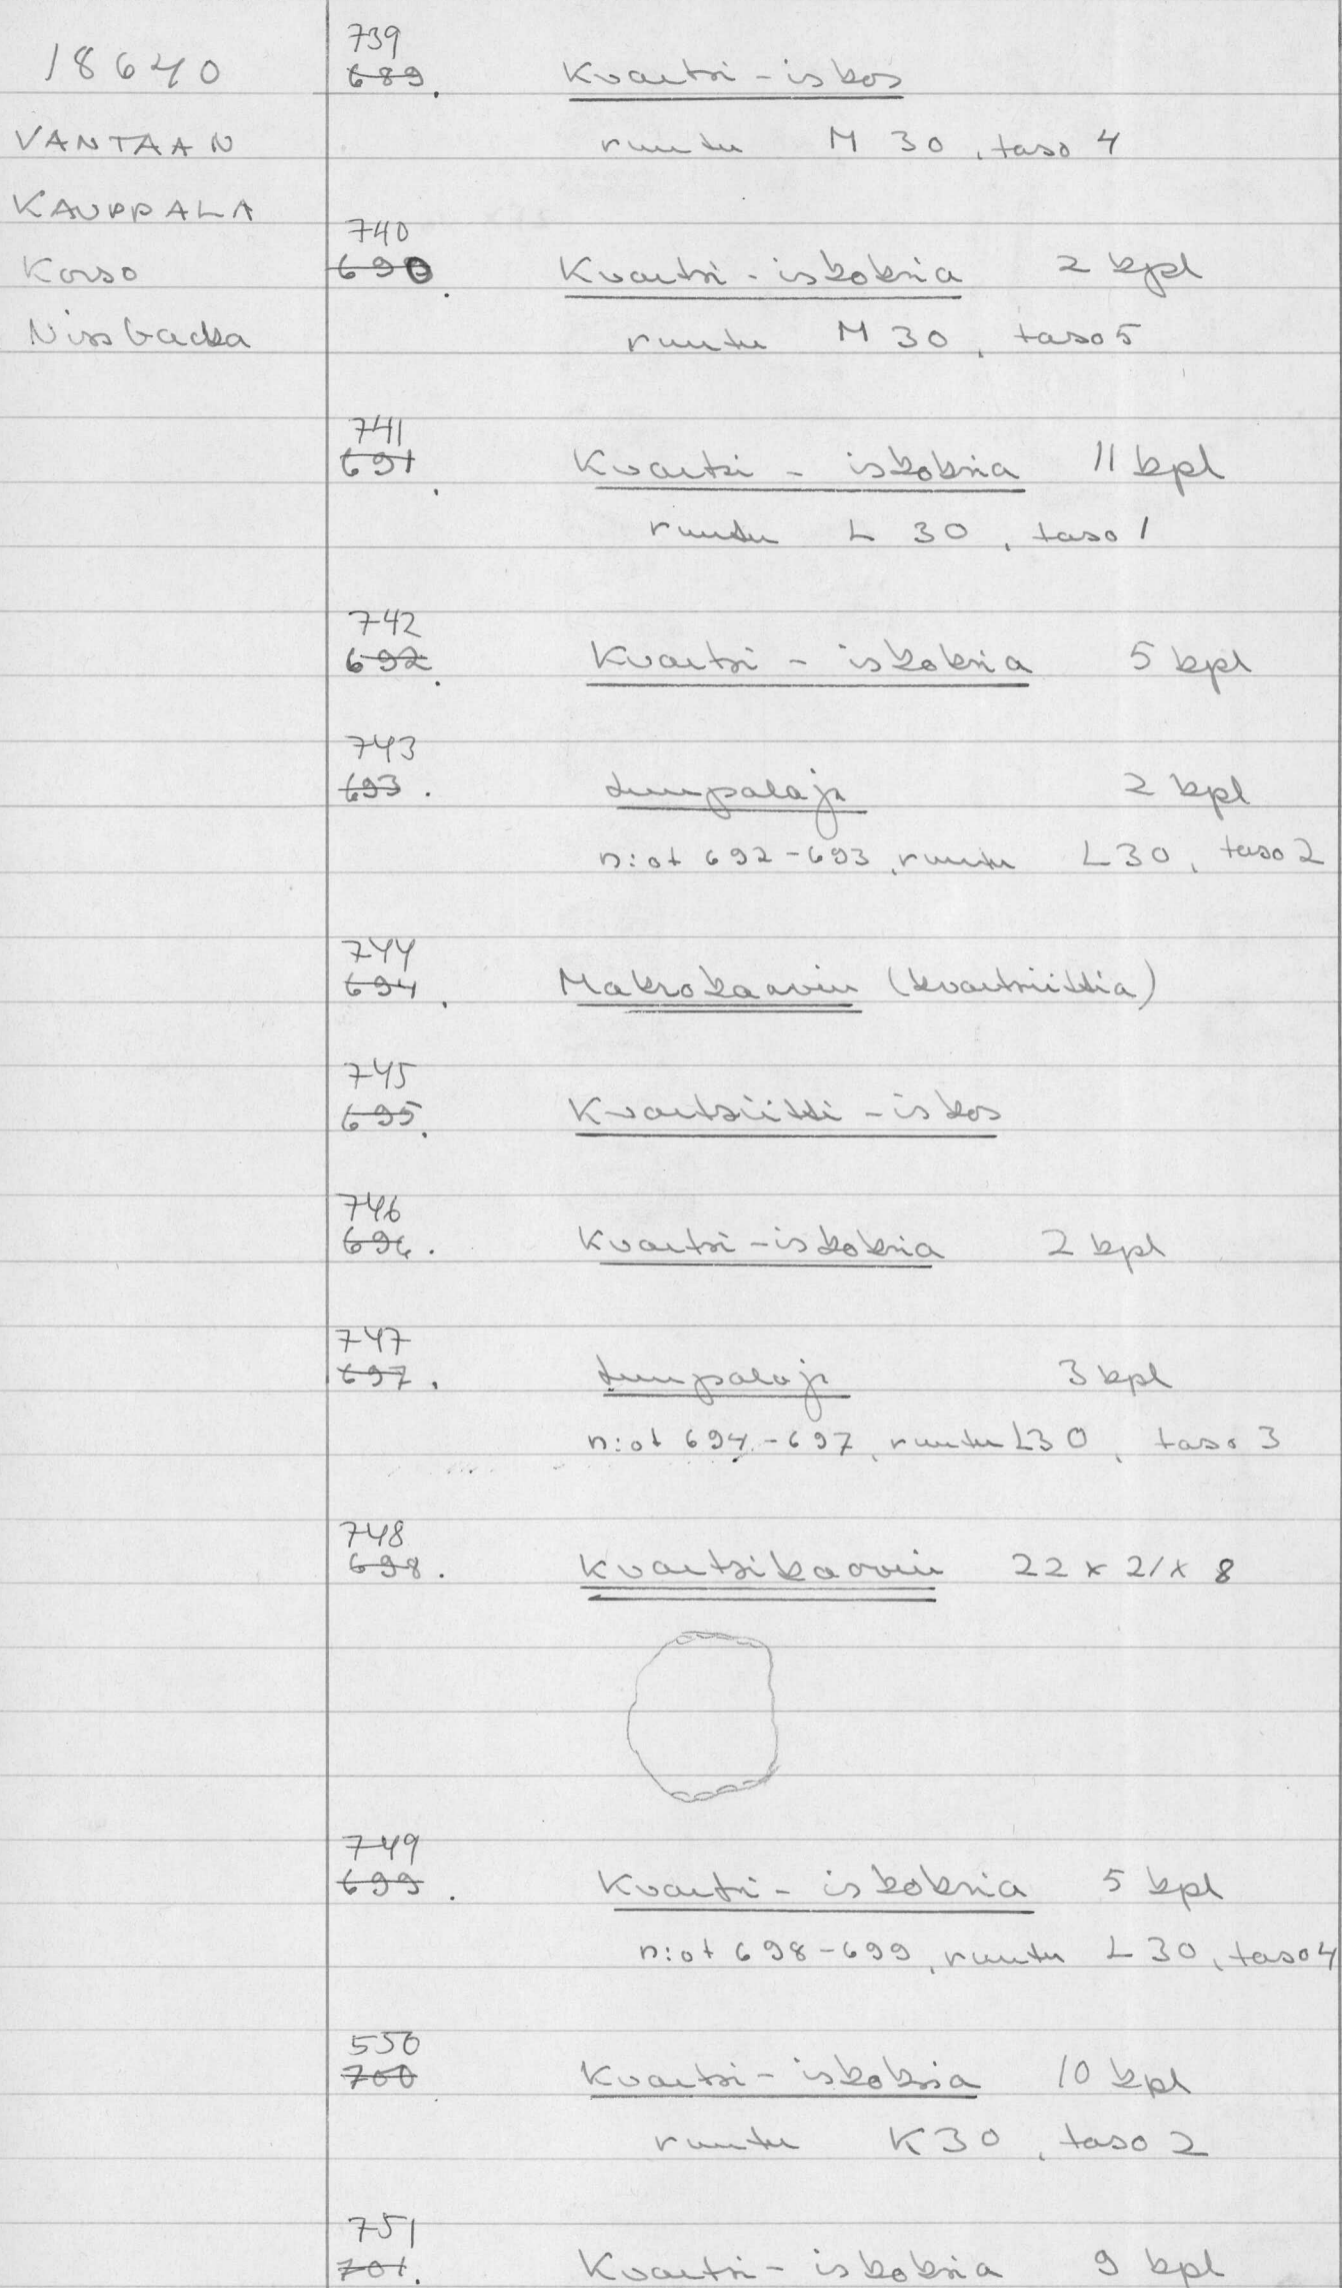 18640
VANTAAN
KAUPPALA
Korso
Nissbacka
739
689. Kvartsi-iskos
ruutu M 30, taso 4
740
690. Kvartsi-iskoksia 2 kpl
ruutu M 30, taso 5
741
691. Kvartsi-iskoksia 11 kpl
ruutu L 30, taso 1
742
692. Kvartsi-iskoksia 5 kpl
743
693. Luupaloja 2 kpl
n:ot 692-693, ruutu L30, taso 2
744
694. Makrokaavin (kvartsiittia)
745
695. Kvartsiitti-iskos
746
696. Kvartsi-iskoksia 2 kpl
747
697. Luupaloja 3 kpl
n:ot 694-697, ruutu L30, taso 3
748
698. Kvartsikaavin 22 x 21 x 8
749
699. Kvartsi-iskoksia 5 kpl
n:ot 698-699, ruutu L 30, taso 4
550
700 Kvartsi-iskoksia 10 kpl
ruutu K30, taso 2
751
701. Kvartsi-iskoksia 9 kpl